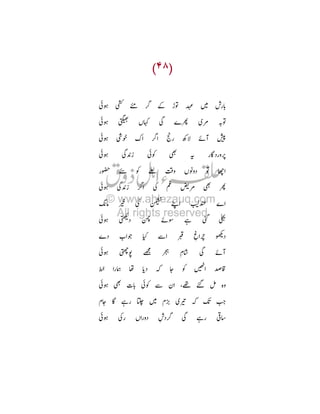 (۴۸)
بارش میں عہد توڑ کے گر مئے کشی ہوئی
توبہ مری پھرے گی کہاں بھیگتی ہوئی
پیش آئے لاکھ رنج اگر اک خوشی ہوئی
پروردگار یہ بھی کوئی زندگی ہوئی
اچھا تو دونوں وقت ملے کو حضور
پھر بھی مریض غم کی اگر زندگی ہوئی
اے عندلیب اپنے نشیمن کی خیر مانگ
بجلی گئی ہے سوئے چمن دیکھتی ہوئی
دیکھو چراغِ قبر اسے کیا جواب دے
آئے گی شامِ ہجر مجھے پوچھتی ہوئی
قاصد انھیں کو جا کہ دیا تھا ہمارا خط
وہ مل گئے تھے، ان سے کوئی بات بھی ہوئی
جب تک کہ تیری بزم میں چلتا رہے گا جام
ساقی رہے گی گردشِ دوراں رکی ہوئی
© www.ahlezauq.com
All rights reserved